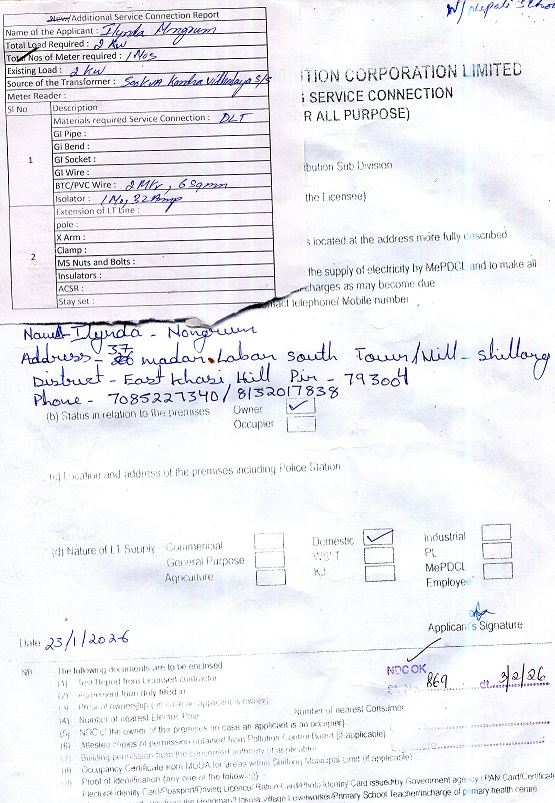 W/ Nepali
New/Additional Service Connection Report
Name of the Applicant : Ilynda Nongrum
Total Load Required : 2 Kw
Total Nos of Meter required : 1 Nos
Existing Load : 2 Kw
Source of the Transformer : Kendra Vidhalaya S/S
Meter Reader :
Sl No Description
Materials required Service Connection : DLT
1
GI Pipe :
GI Bend :
GI Socket :
GI Wire :
BTC/PVC Wire : 2 Mtr, 6 Sqmm
Isolator : 1 No, 32 Amp
2
Extension of LT Line :
pole :
X Arm :
Clamp :
MS Nuts and Bolts :
Insulators :
ACSR :
Stay set :
TION CORPORATION LIMITED
SERVICE CONNECTION
R ALL PURPOSE)
bution Sub Division
the Licensee)
s located at the address more fully described
the supply of electricity by MePDCL and to make all
charges as may become due
tact telephone/ Mobile number
Name - Ilynda - Nongrum
Address - 37 madan Laban South Town/Vill - Shillong
District - East Khasi Hill Pin - 793004
Phone - 7085227340/8132017838
(b) Status in relation to the premises Owner
Occupier
(c) Location and address of the premises including Police Station
(d) Nature of LT Supply Commercial Domestic Industrial
General Purpose WSLT PL
Agriculture KJ MePDCL
Employee
Applicant's Signature
Date 23/1/2026
NDC OK
869 dt. 3/2/26
NB The following documents are to be enclosed
(1) Test Report from Licensed contractor
(2) Agreement form duly filled in
(3) Proof of ownership (in case an applicant is owner)
(4) Number of nearest Electric Pole Number of nearest Consumer
(5) NOC of the owner of the premises (in case an applicant is an occupier)
(6) Attested copies of permission obtained from Pollution Control Board (if applicable)
(7) Building permission from the concerned authority (if applicable)
(8) Occupancy Certificate from MUDA for areas within Shillong Municipal Limit (if applicable)
(9) Proof of Identification (any one of the following)
Electoral Identity Card/Passport/Driving Licence/ Ration Card/Photo Identity Card issued by Government agency / PAN Card/Certificate
Village Level worker/Primary School Teacher/Incharge of primary health centre